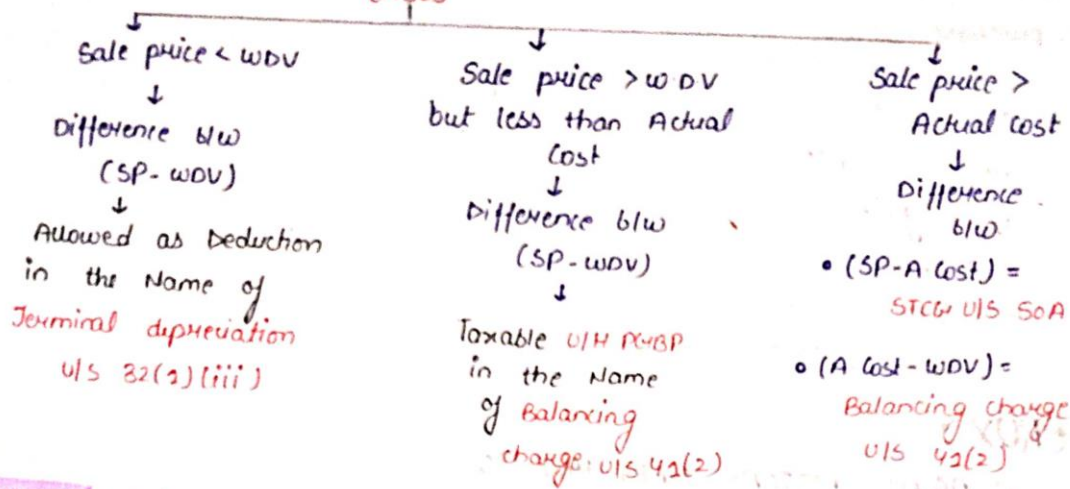 Sale price < WDV
↓
Difference b/w
(SP - WDV)
↓
Allowed as Deduction
in the Name of
Terminal depreciation
U/S 32(1)(iii)
Sale price > WDV
but less than Actual
Cost
↓
Difference b/w
(SP - WDV)
↓
Taxable U/H PGBP
in the Name
of Balancing
charge: U/S 41(2)
Sale price >
Actual Cost
↓
Difference
b/w
• (SP-A Cost) =
STCG U/S 50A
• (A Cost - WDV) =
Balancing charge
U/S 41(2)